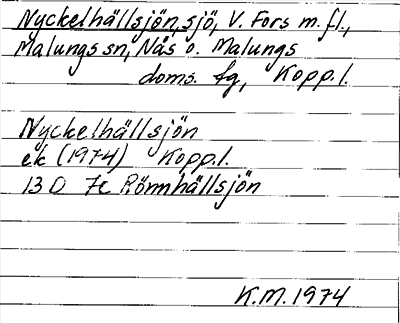 Nyckelhällsjön, sjö, V. Fors m.fl.,
Malungs sn, Nås o. Malungs
doms. fg, Kopp.l.
Nyckelhällsjön
ek (1974) Kopp.l.
13 D 7c Rönnhällsjön
K.M. 1974